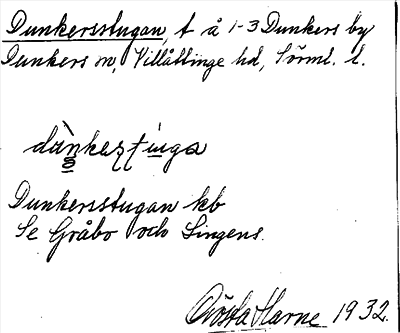 Dunkersstugan, t å 1-3 Dunkers by
Dunkers sn, Villåttinge hd, Sörml. l.
dùnkeʂtiṇga
Dunkersstugan kb
Se Gråbo och Lingens.
Gösta Harne 1932.